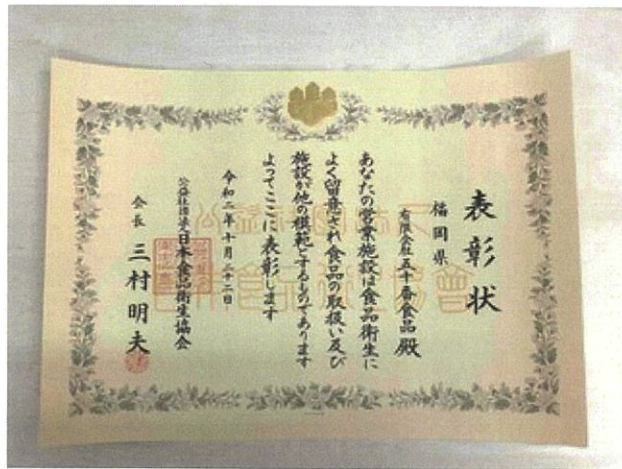 表彰状
福岡県
有限会社五十番食品殿
あなたの営業施設は食品衛生に
よく留意され食品の取扱い及び
施設が他の模範とするものであります
よってここに表彰します
令和二年十月二十二日
公益社団法人日本食品衛生協会
会長 三村明夫